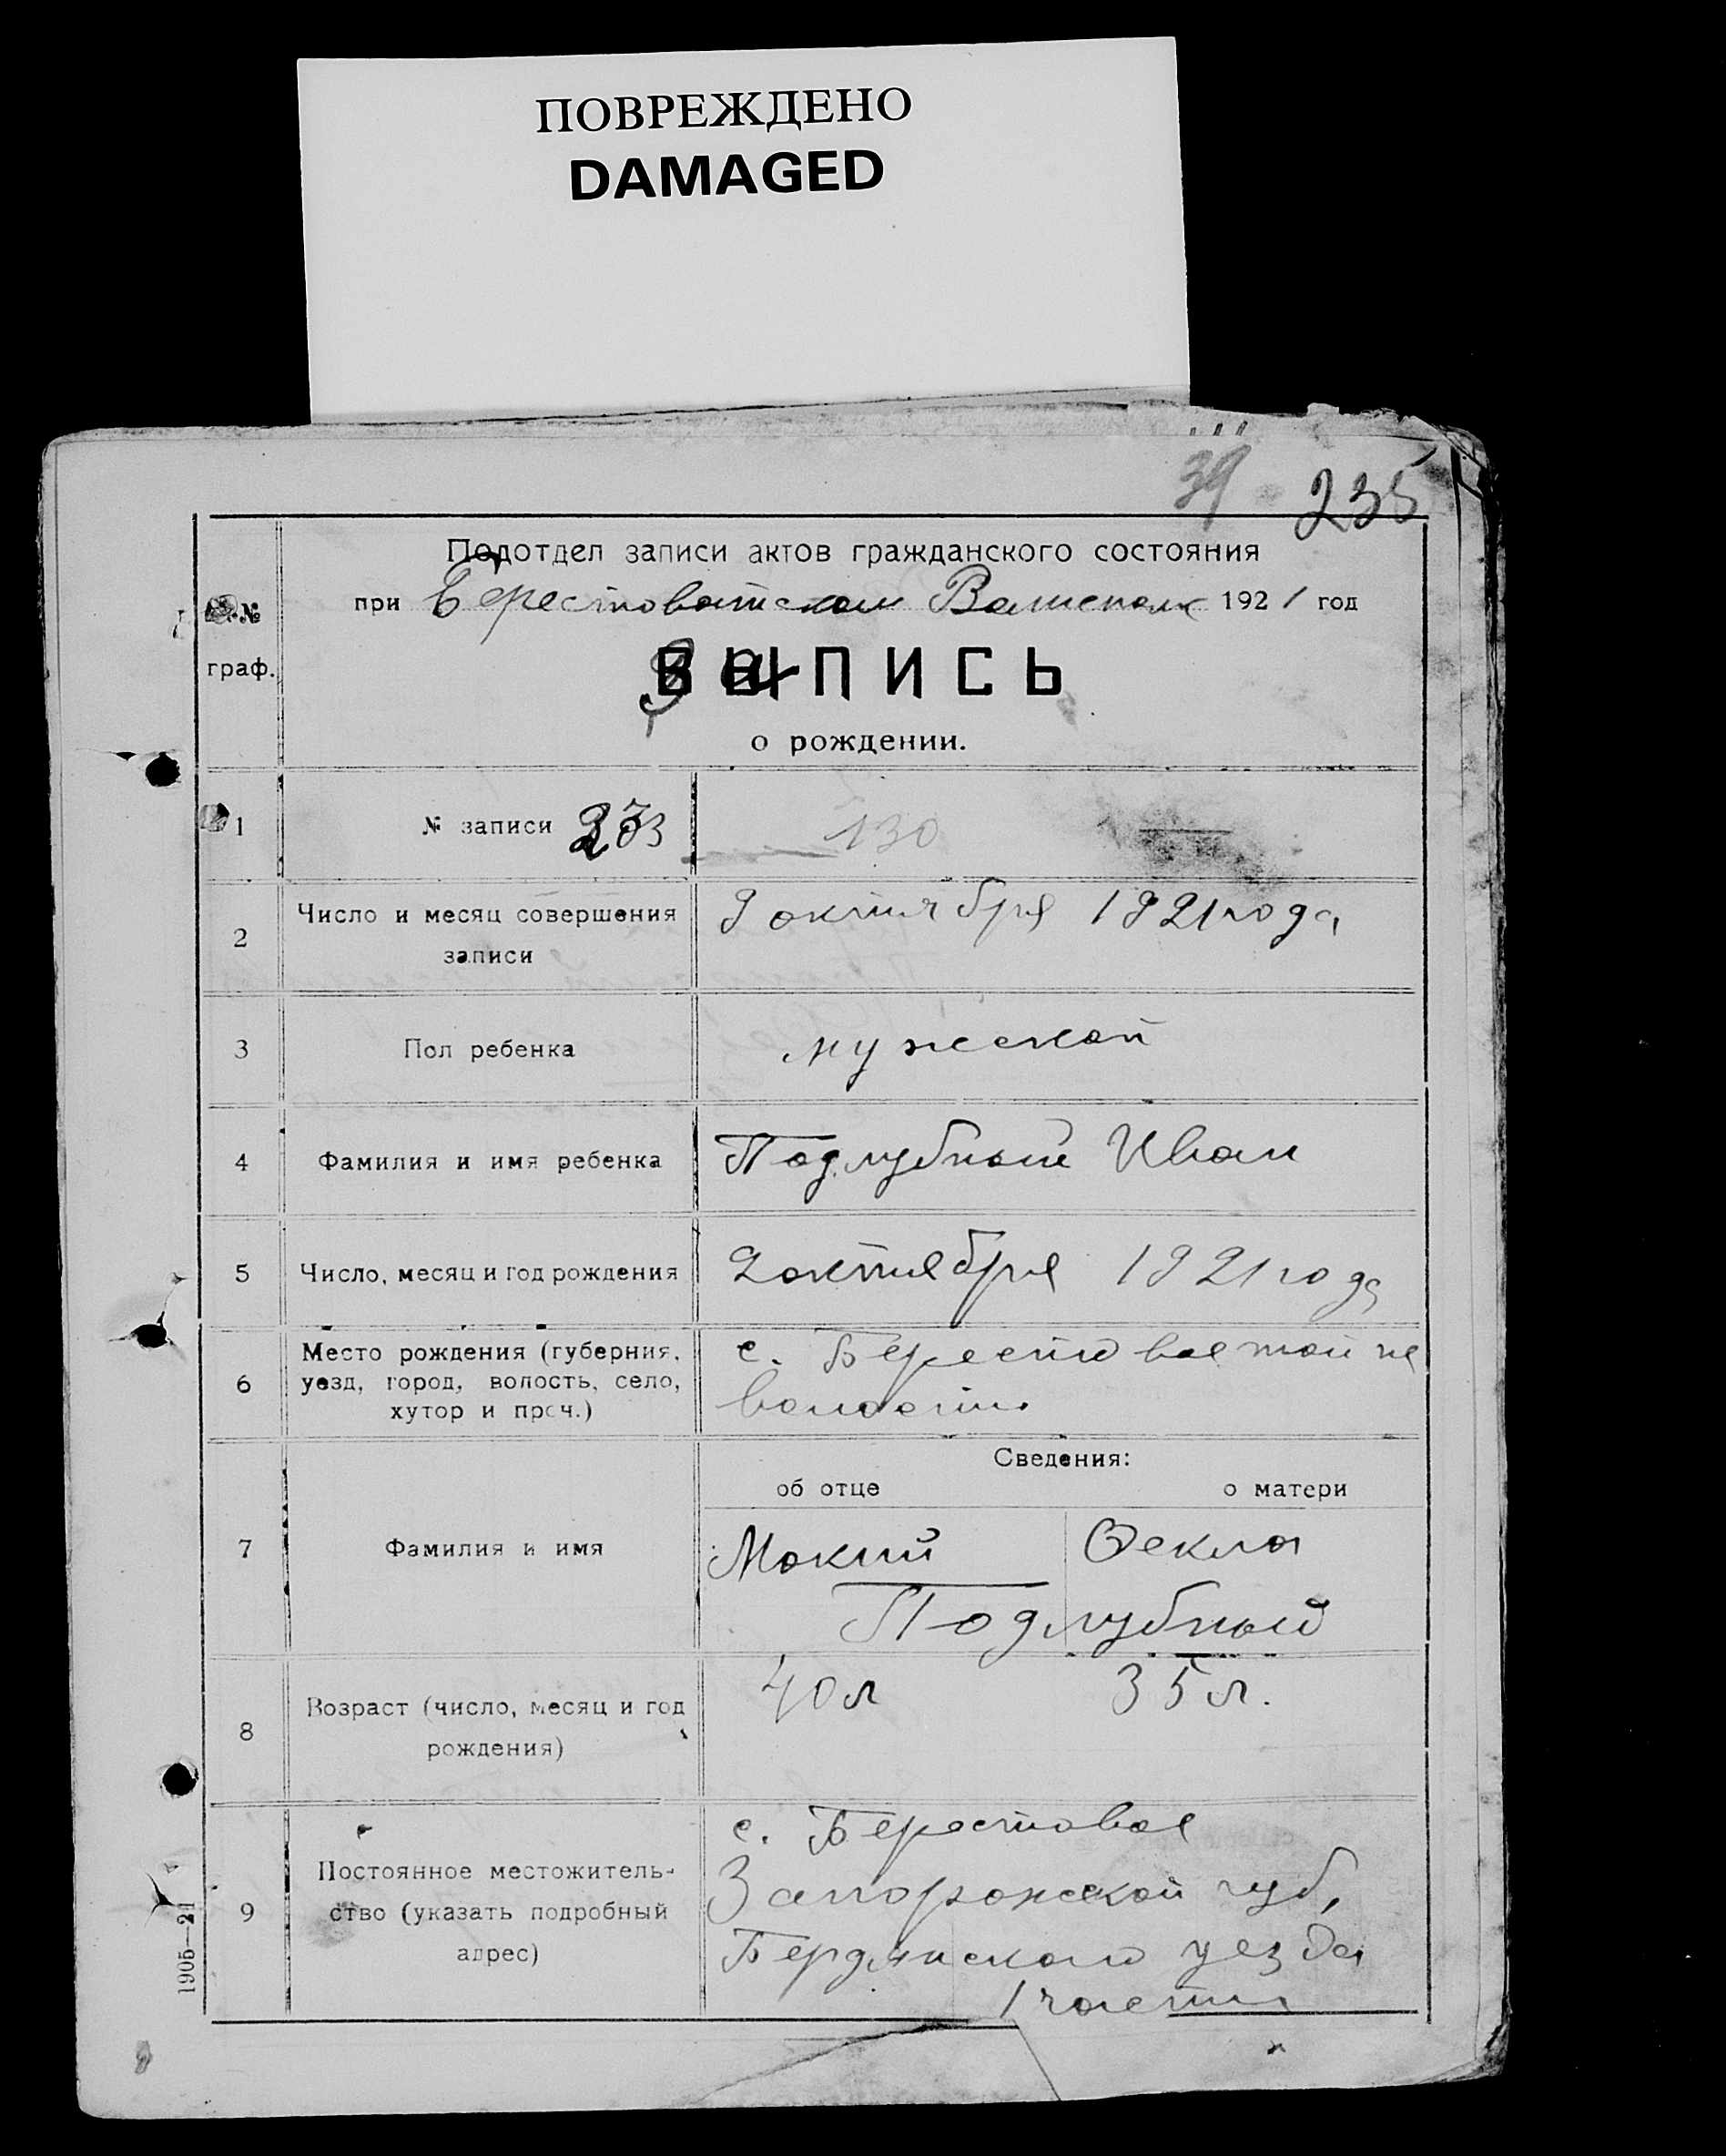 ПОВРЕЖДЕНО
DAMAGED
39 235
Подотдел записи актов гражданского состояния
№№ граф.
при Берестоватском Волисполк 1921 год
ВЫПИСЬ
За
о рождении.
1 № записи 233 130 —
2 Число и месяц совершения записи
9 октября 1921 года
3 Пол ребенка мужской
4 Фамилия и имя ребенка Подлубный Иван
5 Число, месяц и год рождения 2 октября 1921 года
6 Место рождения (губерния,
уезд, город, волость, село,
хутор и проч.)
с. Берестовое той же
волости
Сведения:
об отце о матери
7 Фамилия и имя Мокий Фекла
Подлубный
8 Возраст (число, месяц и год
рождения)
40 л 35 л.
9 Постоянное местожитель-
ство (указать подробный
адрес)
с. Берестовое
Запорожской губ,
Бердянского уезда
1 части
1905—21